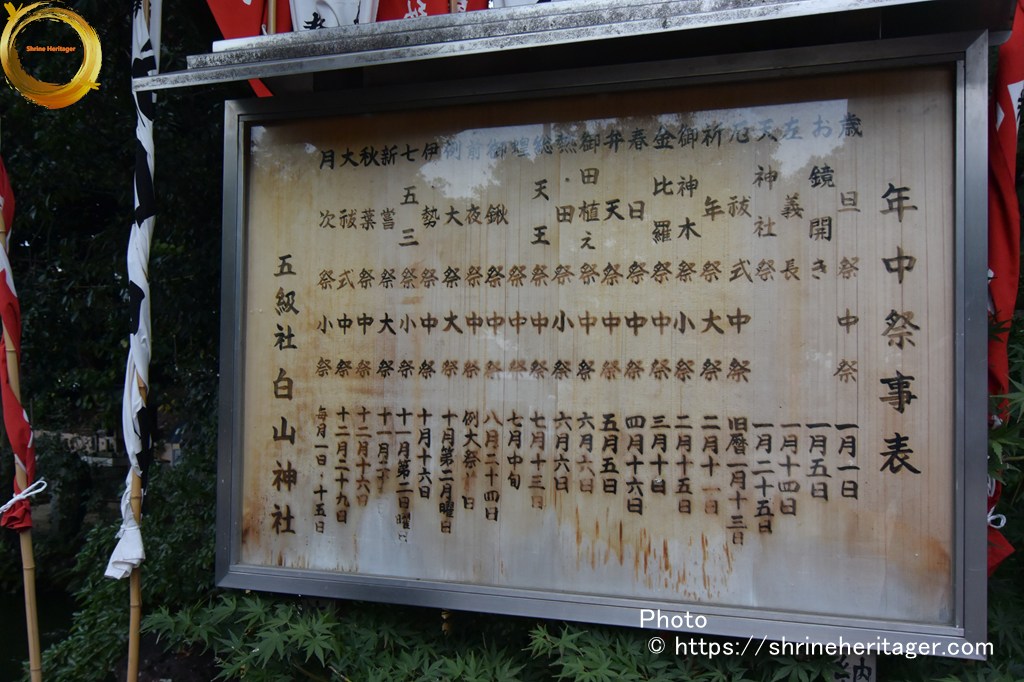 年中祭事表
歳旦祭 中祭 一月一日
お鏡開き 一月五日
左義長 一月十四日
天神社祭 一月二十五日
厄祓式 中祭 旧暦一月十三日
祈年祭 大祭 二月十一日
御神木祭 小祭 二月十五日
金比羅祭 中祭 三月十日
春日祭 中祭 四月十六日
弁天祭 中祭 五月五日
御田植え祭 中祭 六月六日
熱・田祭 小祭 六月六日
総天王祭 中祭 七月十三日
祭 中祭 七月中旬
御鍬祭 中祭 八月二十四日
前夜祭 中祭 例大祭 日
例大祭 大祭 十月第二月曜日
伊勢祭 中祭 十月十六日
七五三祭 小祭 十一月第二日曜日
新嘗祭 大祭 十一月
秋葉祭 中祭 十二月十六日
大祓式 中祭 十二月二十九日
月次祭 小祭 毎月一日・十五日
五級社 白山神社
Shrine Heritager
Photo
© https://shrineheritager.com